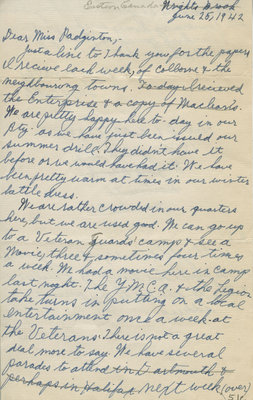 Eastern Canada
Wrights Brook
June 25, 1942
Dear Miss Padginton,-
Just a line to thank you for the papers
I recieve each week, of Colborne & the
neighbouring towns. To-day I recieved
the Enterprise & a copy of Macleans.
We are pretty happy here to-day in our
Bty. as we have just been issued our
summer drill. They didn't have it
before or we would have had it. We have
been pretty warm at times in our winter
battle dress.
We are rather crowded in our quarters
here, but we are used good. We can go up
to a Veteran Guards' camp & see a
Movie, three & sometimes four times
a week. We had a movie here in camp
last night. The Y.M.C.A. & the Legion
take turns in putting on a local
entertainment once a week at
the Veterans. There is not a great
deal more to say. We have several
parades to attend in Dartmouth &
perhaps in Halifax next week (over)